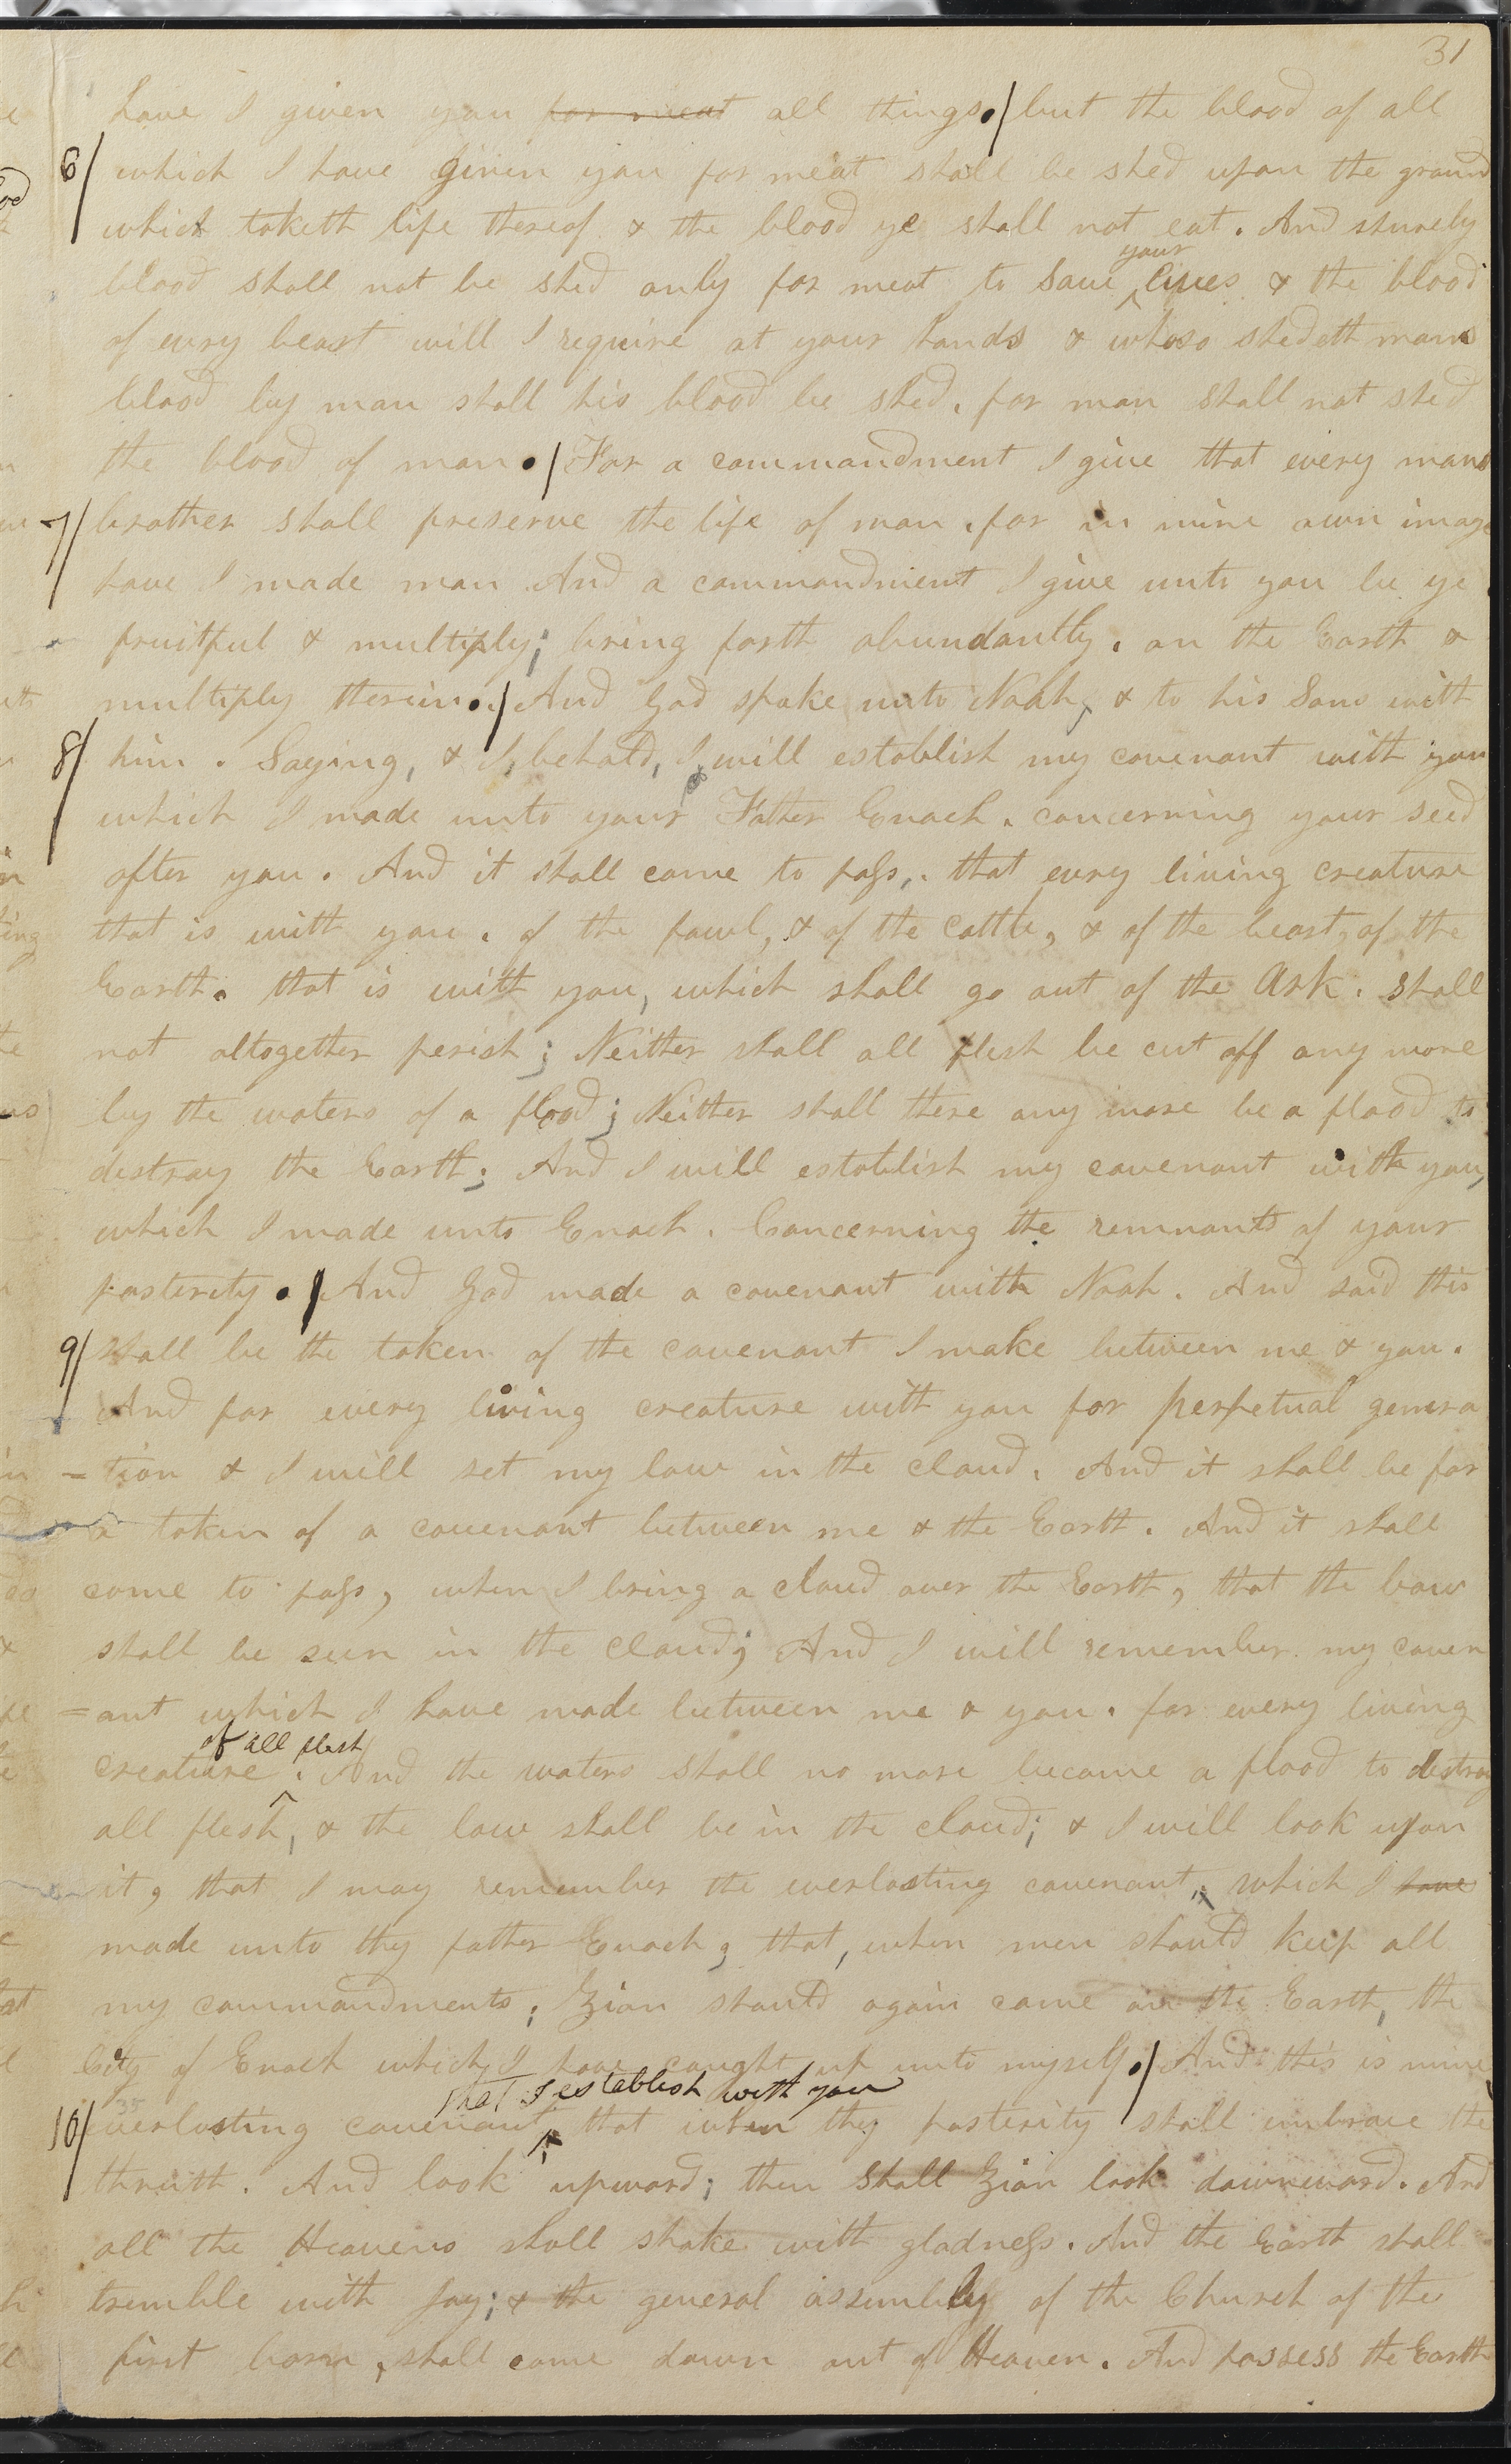 31
have I given you for meat all things./but the blood of all
6/ which I have given you for meat shall be shed upon the ground
which taketh life thereof & the blood ye shall not eat. And shurely
your
blood shall not be shed only for meat to save ^ lives & the blood
of every beast will I require at your hands & whoso shedeth mans
blood by man shall his blood be shed. for man shall not shed
the blood of man./ For a commandment I give that every mans
7/ brother shall preserve the life of man. for in mine own image
have I made man And a commandment I give unto you be ye
fruitful & multiply; bring forth abundantly. on the Earth &
multiply therein./ And God spake unto Noah, & to his Sons with
8/ him. Saying, & I, behold, I will establish my covenant with you
which I made unto your Father Enoch. concerning your seed
after you. And it shall come to pass,. that every living creature
that is with you. of the fowl, & of the cattle, & of the beast, of the
Earth. that is with you, which shall go out of the Ark. shall
not altogether perish; Neither shall all flesh be cut off any more
by the waters of a flood; Neither shall there any more be a flood to
destroy the Earth; And I will establish my covenant with you,
which I made unto Enoch. Concerning the remnants of your
posterity./ And God made a covenant with Noah. And said this
9/ shall be the token of the covenant I make between me & you.
And for every living creature with you for perpetual genera
=tion & I will set my bow in the cloud. And it shall be for
a token of a covenant between me & the Earth. And it shall
come to pass, when I bring a cloud over the Earth, that the bow
shall be seen in the cloud; And I will remember my coven
=ant which I have made between me & you. for every living
of all flesh
creature. And the waters shall no more become a flood to destroy
all flesh, & the bow shall be in the cloud; & I will look upon
it, that I may remember the everlasting covenant, which I have
made unto thy father Enoch; that, when men should keep all
my commandments; Zion should again come on the Earth, the
City of Enoch which I have caught up unto myself./ And this is mine
that I establish with you
10/ everlasting covenant ^ that when thy posterity shall embrace the
thruth. And look upward; then shall Zion look downward. And
all the Heavens shall shake with gladness. And the Earth shall
tremble with Joy; & the general assembly of the Church of the
first born, shall come down out of Heaven. And possess the Earth